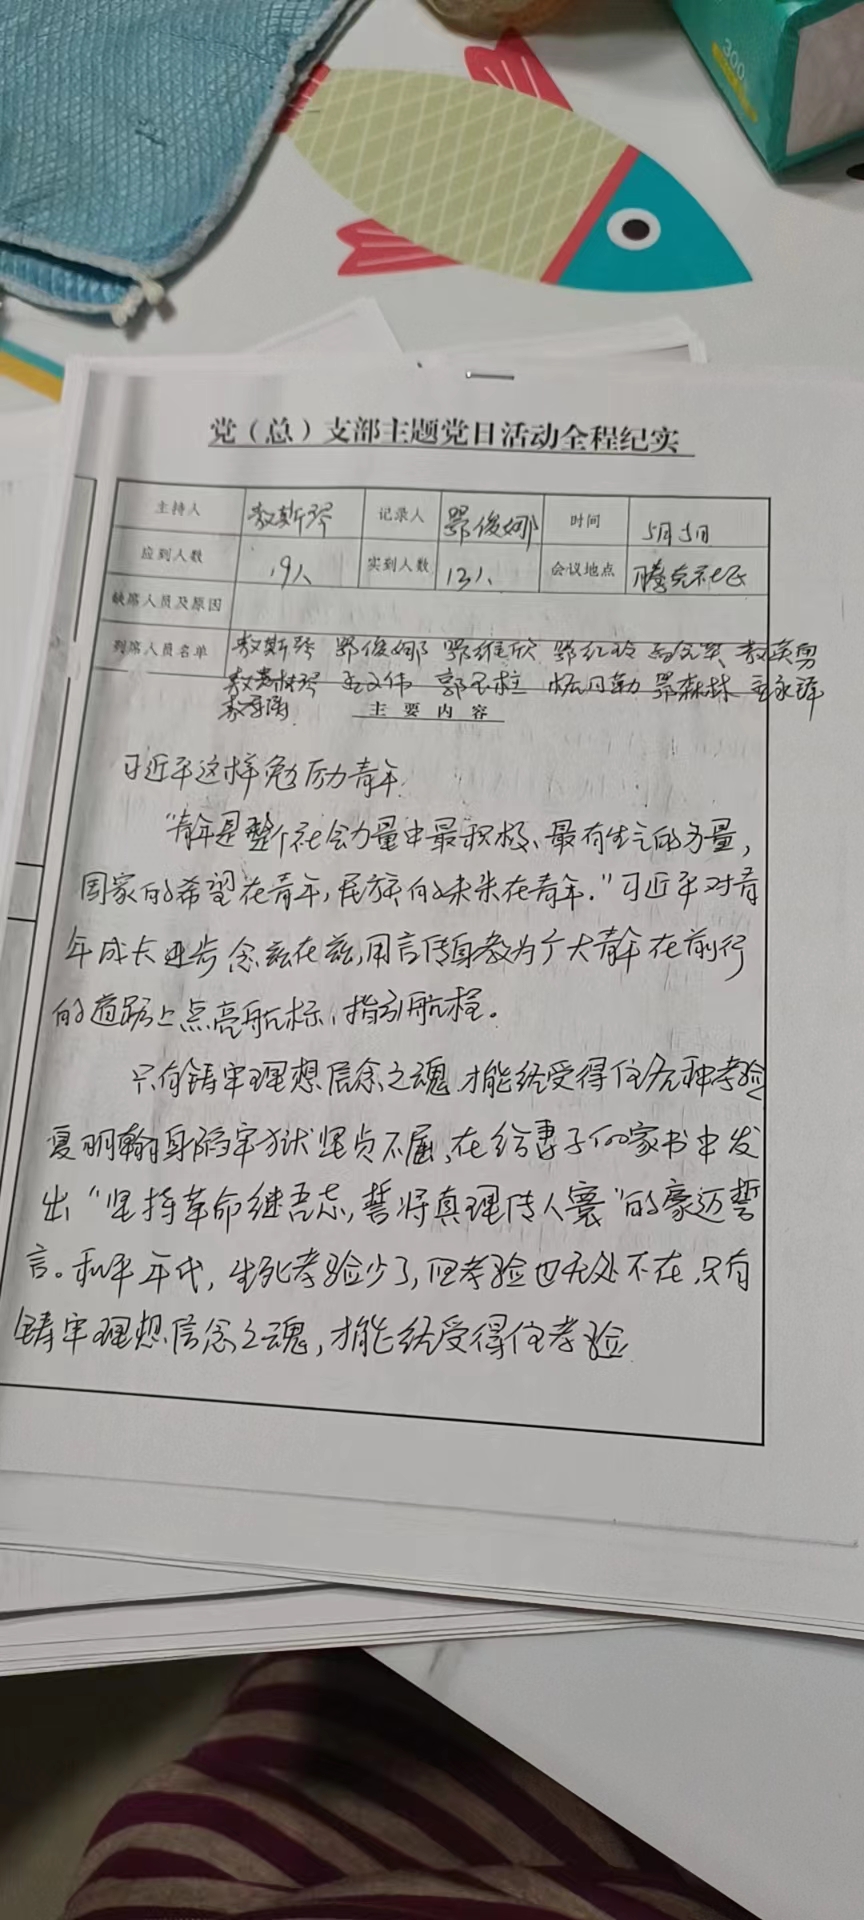 300
党（总）支部主题党日活动全程纪实
主持人 敖斯琴 记录人 鄂俊娜 时间 5月5日
应到人数 19人 实到人数 13人 会议地点 腾克社区
缺席人员及原因
列席人员名单 敖斯琴 鄂俊娜 鄂维欣 鄂红玲 敖英勇
文伟 郭 柱 鄂森林
主要内容
习近平这样勉励青年
“青年是整个社会力量中最积极、最有生气的力量，
国家的希望在青年，民族的未来在青年.”习近平对青
年成长进步念兹在兹，用言传身教为广大青年在前行
的道路上点亮航标，指引航程。
只有铸牢理想信念之魂 才能经受得住各种考验
夏明翰身陷牢狱坚贞不屈，在给妻子的家书中发
出“坚持革命继吾志，誓将真理传人寰”的豪迈誓
言。和平年代，生死考验少了，但考验也无处不在，只有
铸牢理想信念之魂，才能经受得住考验